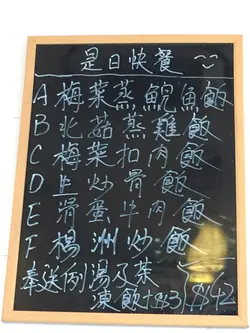 是日快餐
A 梅菜蒸鯇魚飯
B 北菇蒸雞飯
C 梅菜扣肉飯
D 生炒骨飯
E 滑蛋牛肉飯
F 楊洲炒飯
奉送例湯及茶 $42
凍飲+$3